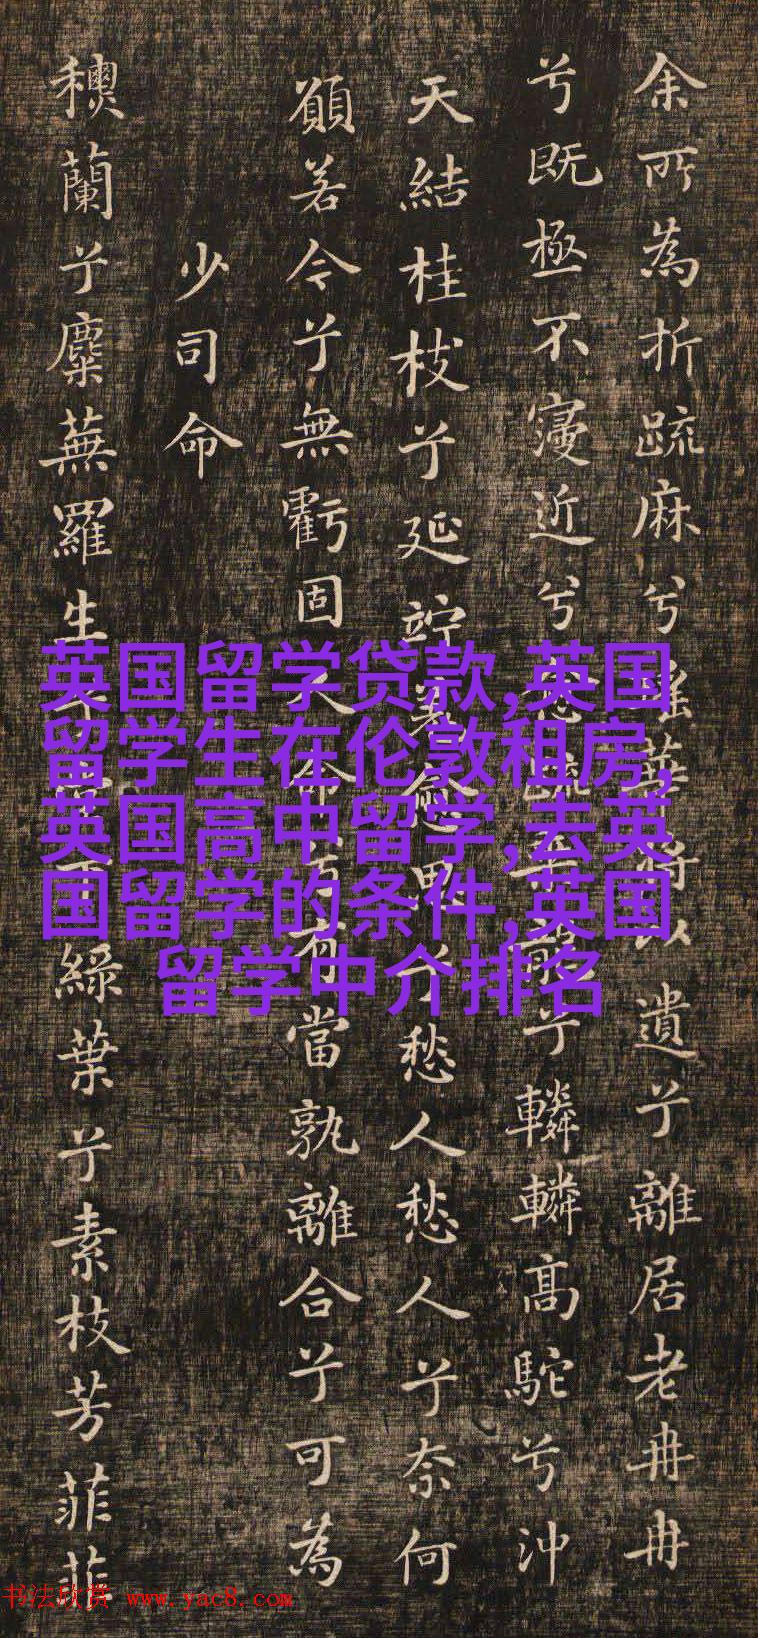 余所為折疏麻兮瑶華将以遺兮離居老冉冉
兮既極不寖近兮愈疏乘龍兮轔轔高駝兮沖
天結桂枝兮延竚羌愈思兮愁人愁人兮奈何
願若今兮無虧固人命兮有當孰離合兮可為
少司命
蘭兮麋蕪羅生兮堂下綠葉兮素枝芳菲菲
英国留学贷款,英国
留学生在伦敦租房,
英国高中留学,去英
国留学的条件,英国
留学中介排名
书法欣赏 www.yac8.com